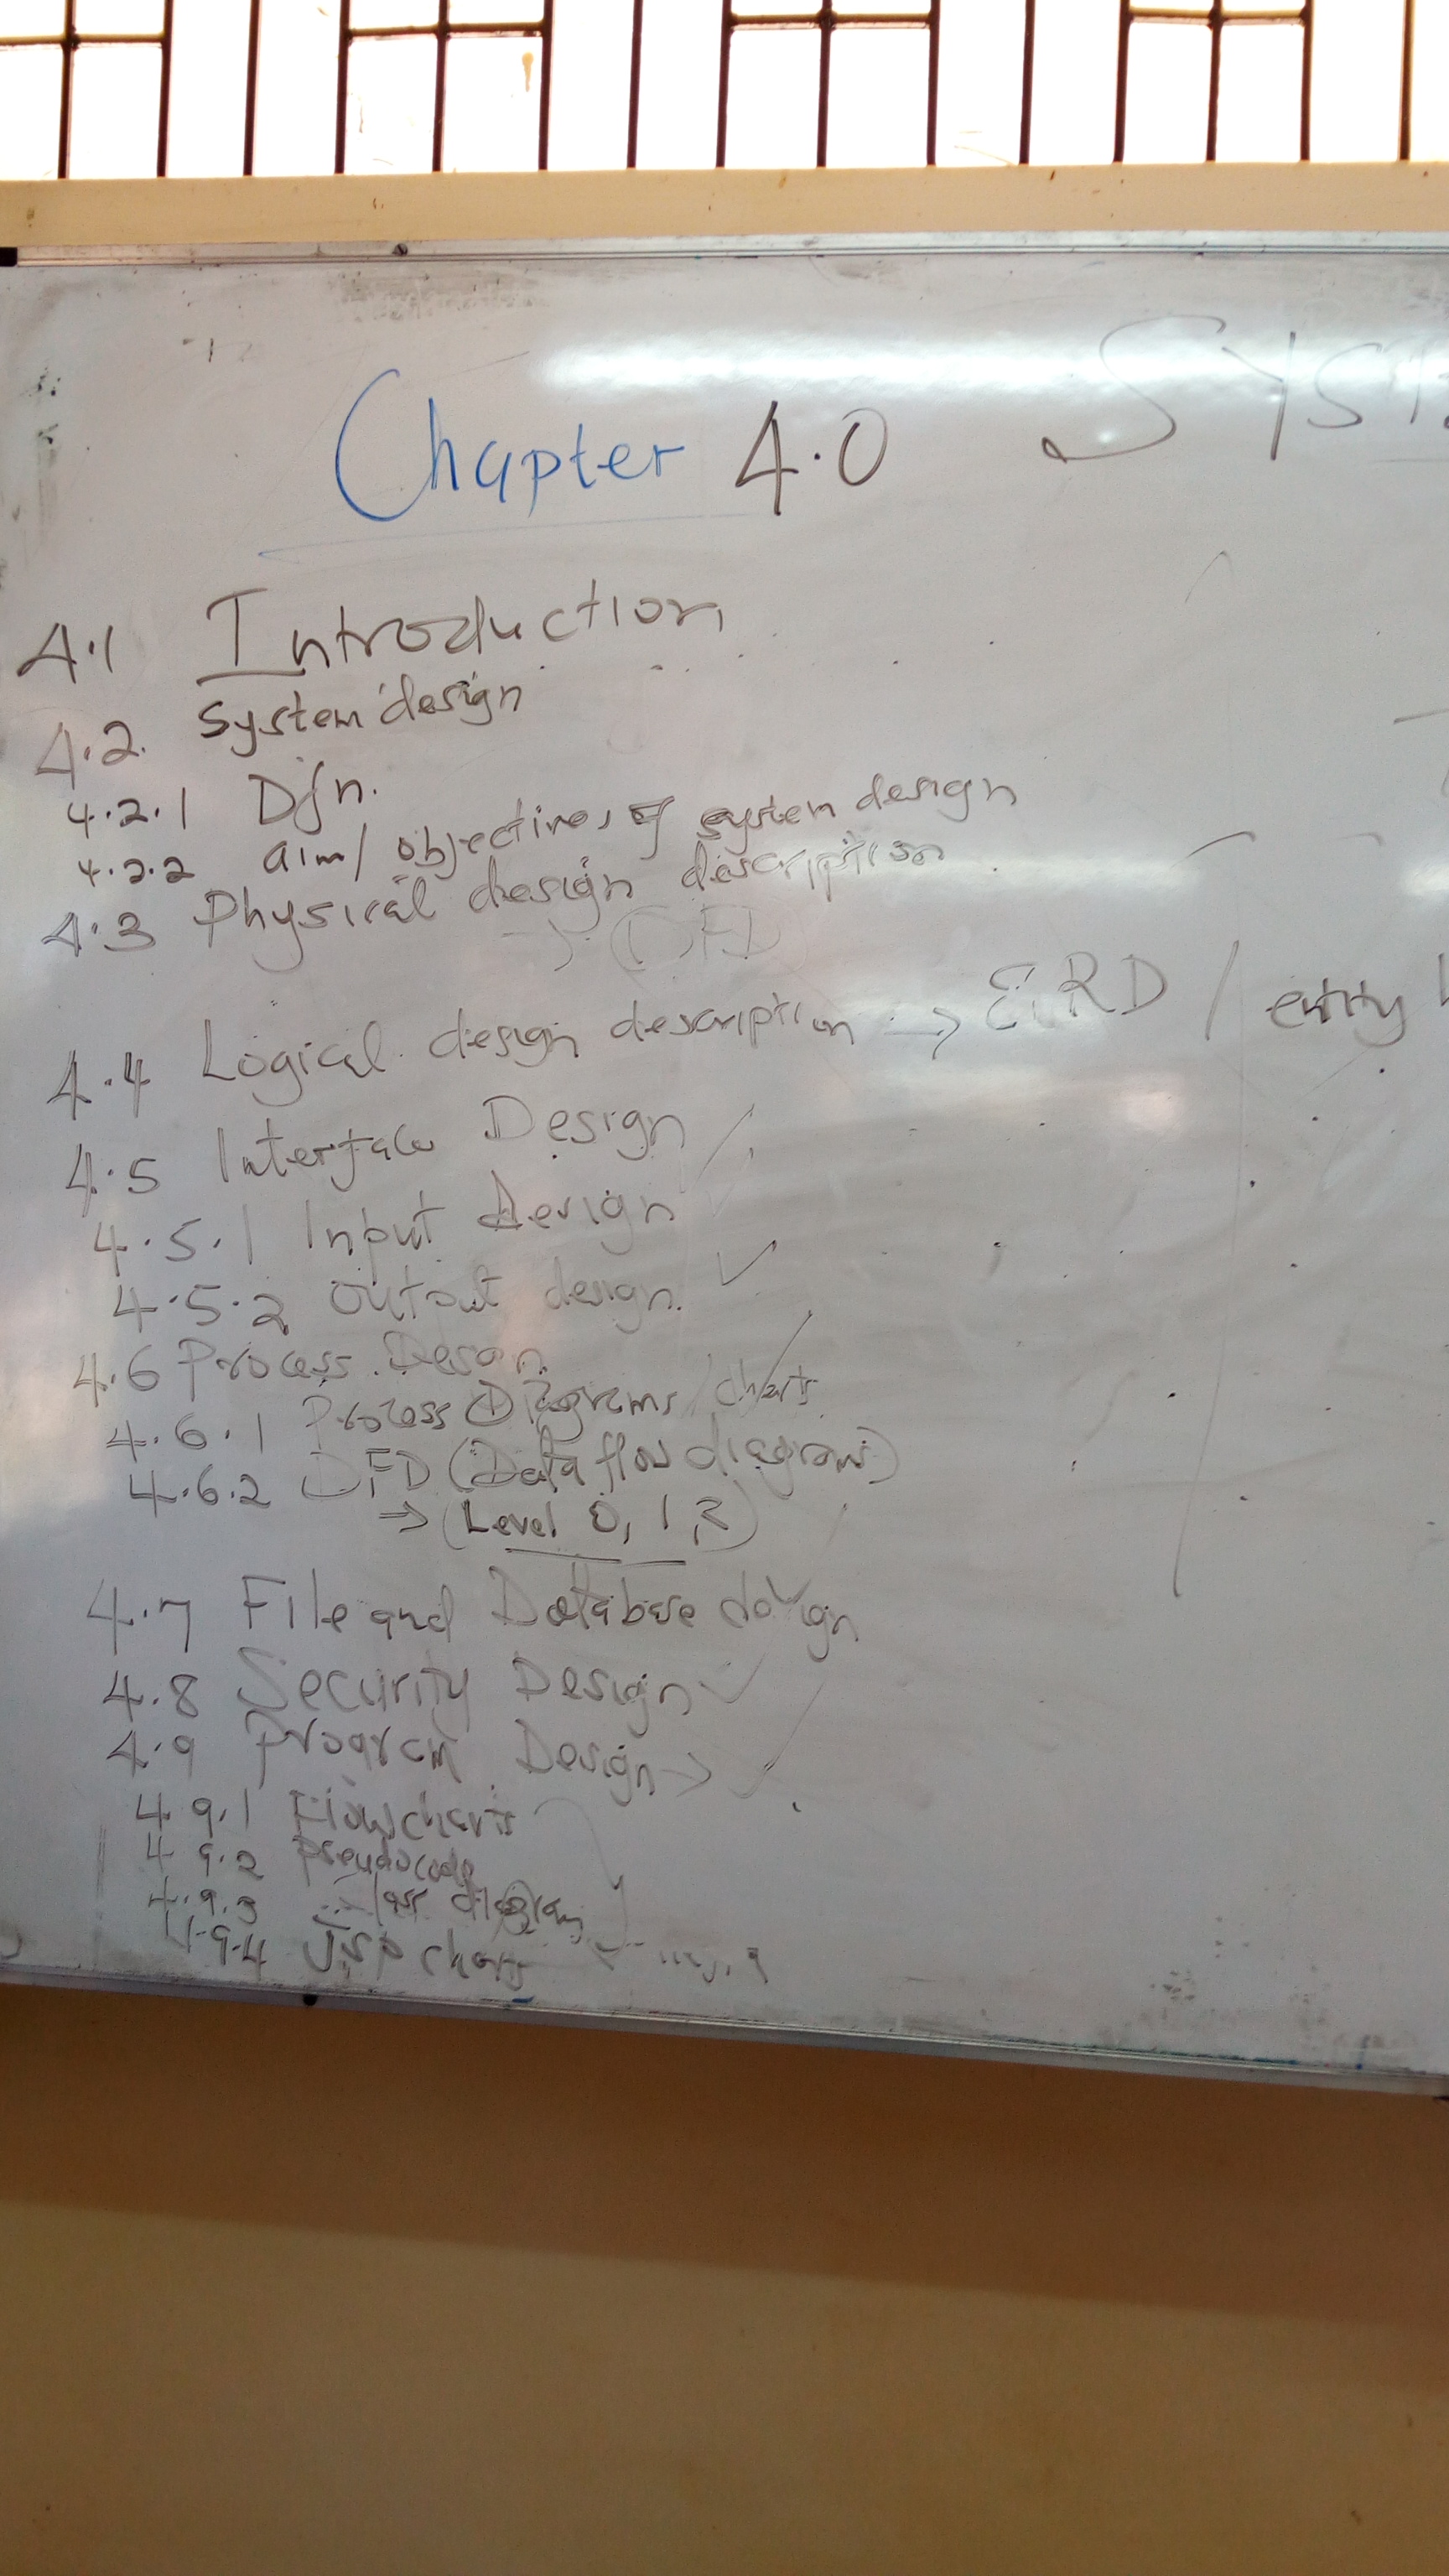 Chapter 4.0 SYST
4.1 Introduction
4.2. System design
4.2.1 Dfn.
4.2.2 aim/objectives of system design
4.3 Physical design description
→ (DFD)
4.4 Logical design description → ERD / entity
4.5 Interface Design
4.5.1 Input design
4.5.2 output design.
4.6 Process Design
4.6.1 Process Diagrams/charts
4.6.2 DFD (Data flow diagrams)
⇒ (Level 0, 1, 2)
4.7 File and Database design
4.8 Security Design
4.9 Program Design →
4.9.1 Flowcharts
4.9.2 Pseudocode
4.9.3 class diagram
4.9.4 JSP charts